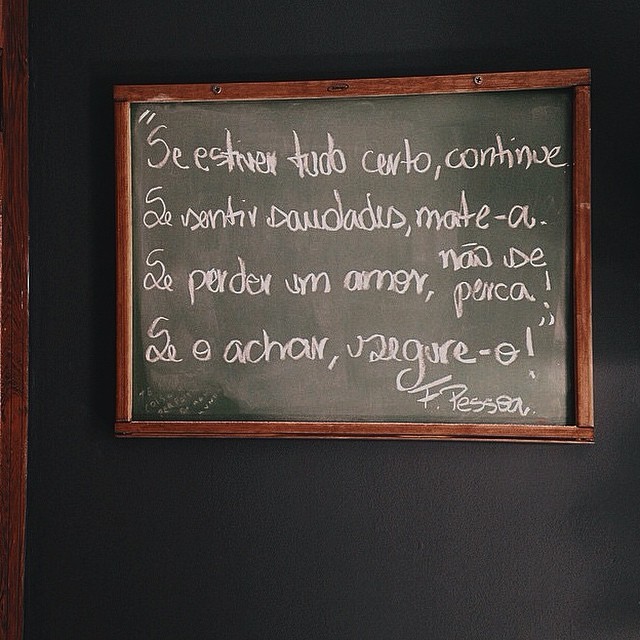 "Se estiver tudo certo, continue
Se sentir saudades, mate-a.
Se perder um amor, não se perca!
Se o achar, segure-o!"
F. Pessoa.